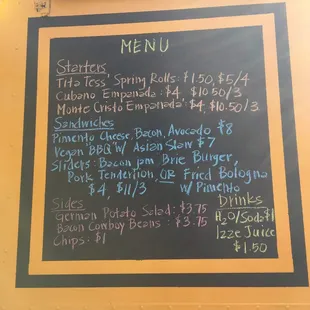 MENU
Starters
Tita Tess' Spring Rolls: $1.50, $5/4
Cubano Empanada: $4 $10.50/3
Monte Cristo Empanada: $4, $10.50/3
Sandwiches
Pimento Cheese, Bacon, Avocado $8
Vegan "BBQ" w/ Asian Slaw $7
Sliders: Bacon jam Brie Burger,
Pork Tenderlion, OR Fried Bologna
$4, $11/3 w/ Pimento
Sides
German Potato Salad: $3.75
Bacon Cowboy Beans: $3.75
Chips: $1
Drinks
H2O/Soda $1
Izze Juice
$1.50